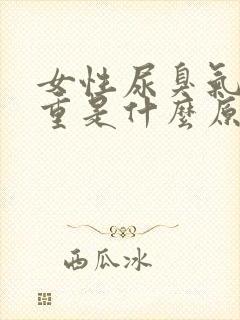 女性尿臭氣
重是什麼原
西瓜冰